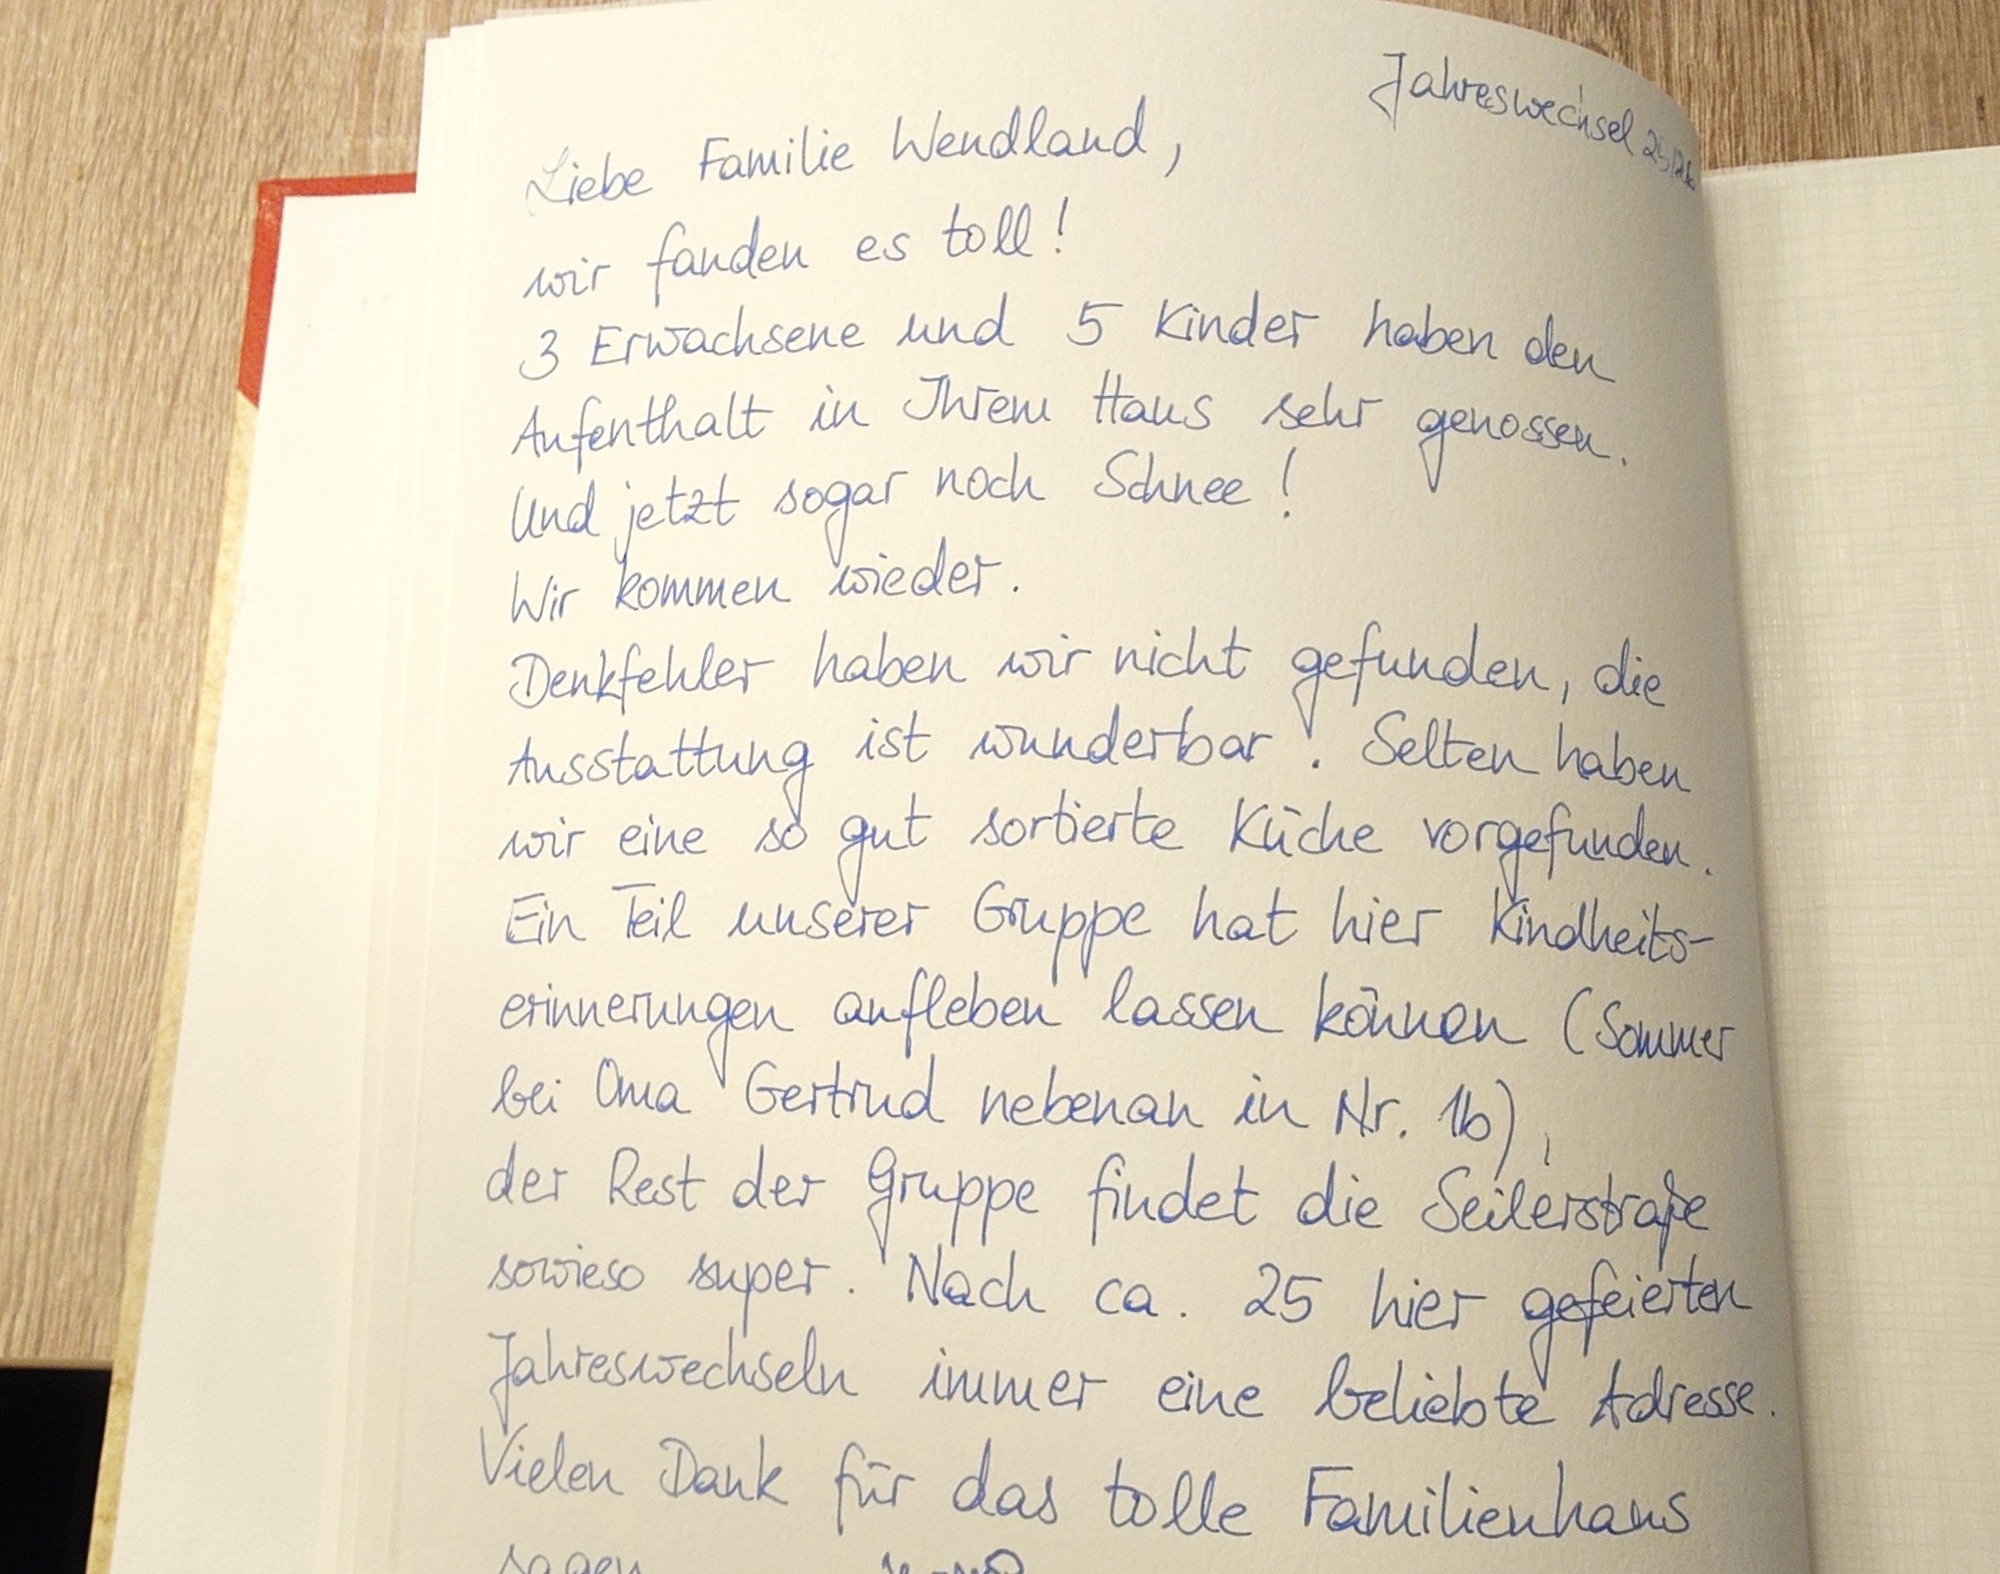 Jahreswechsel 25/26
Liebe Familie Wendland,
wir fanden es toll!
3 Erwachsene und 5 Kinder haben den
Aufenthalt in Ihrem Haus sehr genossen.
Und jetzt sogar noch Schnee!
Wir kommen wieder.
Denkfehler haben wir nicht gefunden, die
Ausstattung ist wunderbar. Selten haben
wir eine so gut sortierte Küche vorgefunden.
Ein Teil unserer Gruppe hat hier Kindheits-
erinnerungen aufleben lassen können (Sommer
bei Oma Gertrud nebenan in Nr. 1b),
der Rest der Gruppe findet die Seilerstraße
sowieso super. Nach ca. 25 hier gefeierten
Jahreswechseln immer eine beliebte Adresse.
Vielen Dank für das tolle Familienhaus
sagen